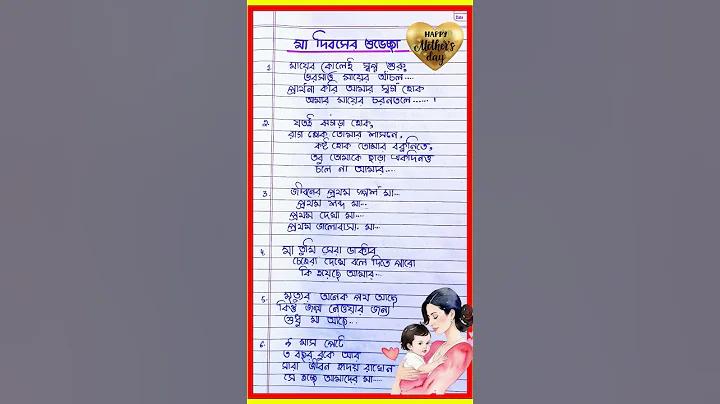 Date
মা দিবসের শুভেচ্ছা
HAPPY
Mother's
day
1. মায়ের কোলেই স্বপ্ন শুরু,
ভরসাটাই মায়ের আঁচল....
প্রার্থনা করি আমার স্বর্গ হোক
আমার মায়ের চরনতলে......।
2. যতই ঝগড়া হোক,
রাগ হোক তোমার শাসনে,
কষ্ট হোক তোমার বকুনিতে,
তবু তোমাকে ছাড়া একদিনও
চলে না আমার....
3. জীবনের প্রথম স্পর্শ মা...
প্রথম শব্দ মা...
প্রথম দেখা মা...
প্রথম ভালোবাসা মা...
4. মা তুমি সেরা ডাক্তার
চেহেরা দেখে বলে দিতে পারো
কি হয়েছে আমার...
5. মৃত্যুর অনেক পথ আছে
কিন্তু জন্ম নেওয়ার জন্য
শুধু মা আছে...
6. ৯ মাস পেটে
৩ বছর বুকে আর
সারা জীবন হৃদয় রাখেন
সে হচ্ছে আমাদের মা....